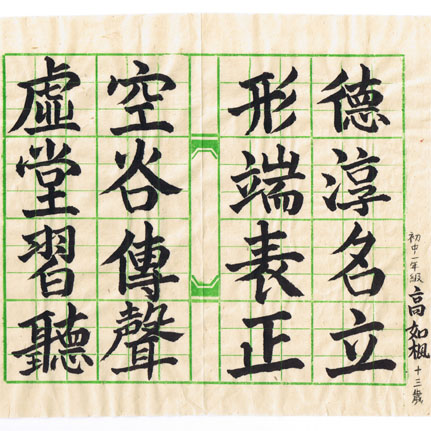 德淳名立
形端表正
空谷傳聲
虛堂習聽
初中一年級 高如楓 十三歲